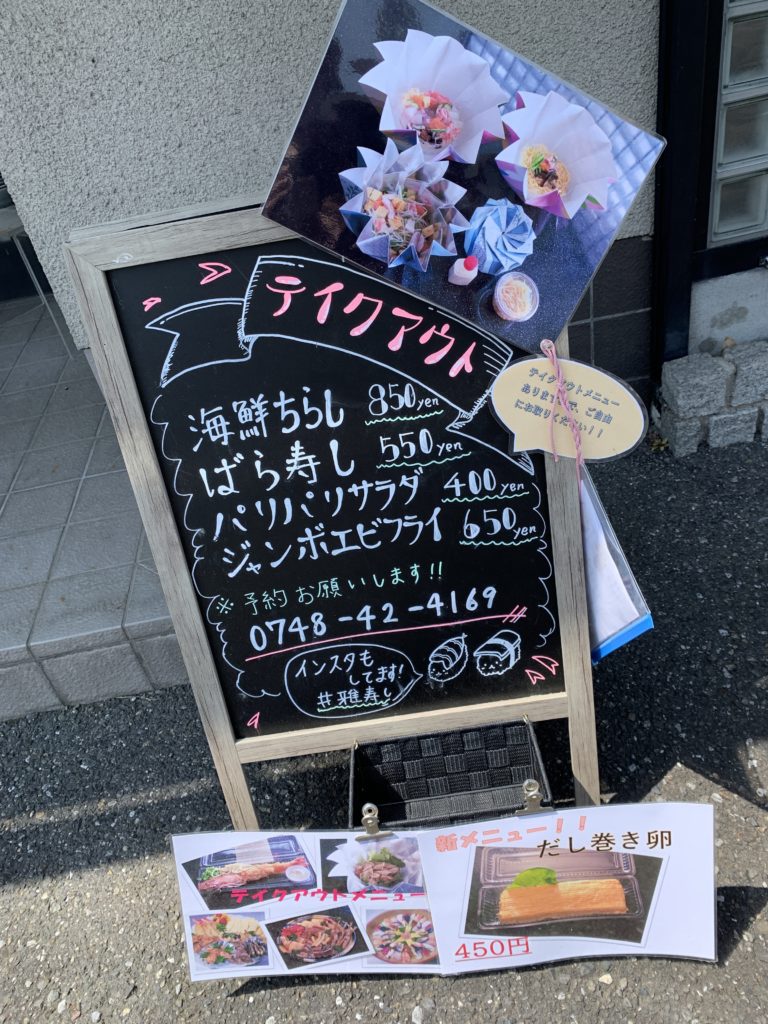 テイクアウト
海鮮ちらし 850yen
ばら寿し 550yen
パリパリサラダ 400yen
ジャンボエビフライ 650yen
※予約お願いします!!
0748-42-4169
インスタも
してます!
#雅寿し
テイクアウトメニュー
ありますので、ご自由
にお取りください！！
テイクアウトメニュー
新メニュー！！
だし巻き卵
450円